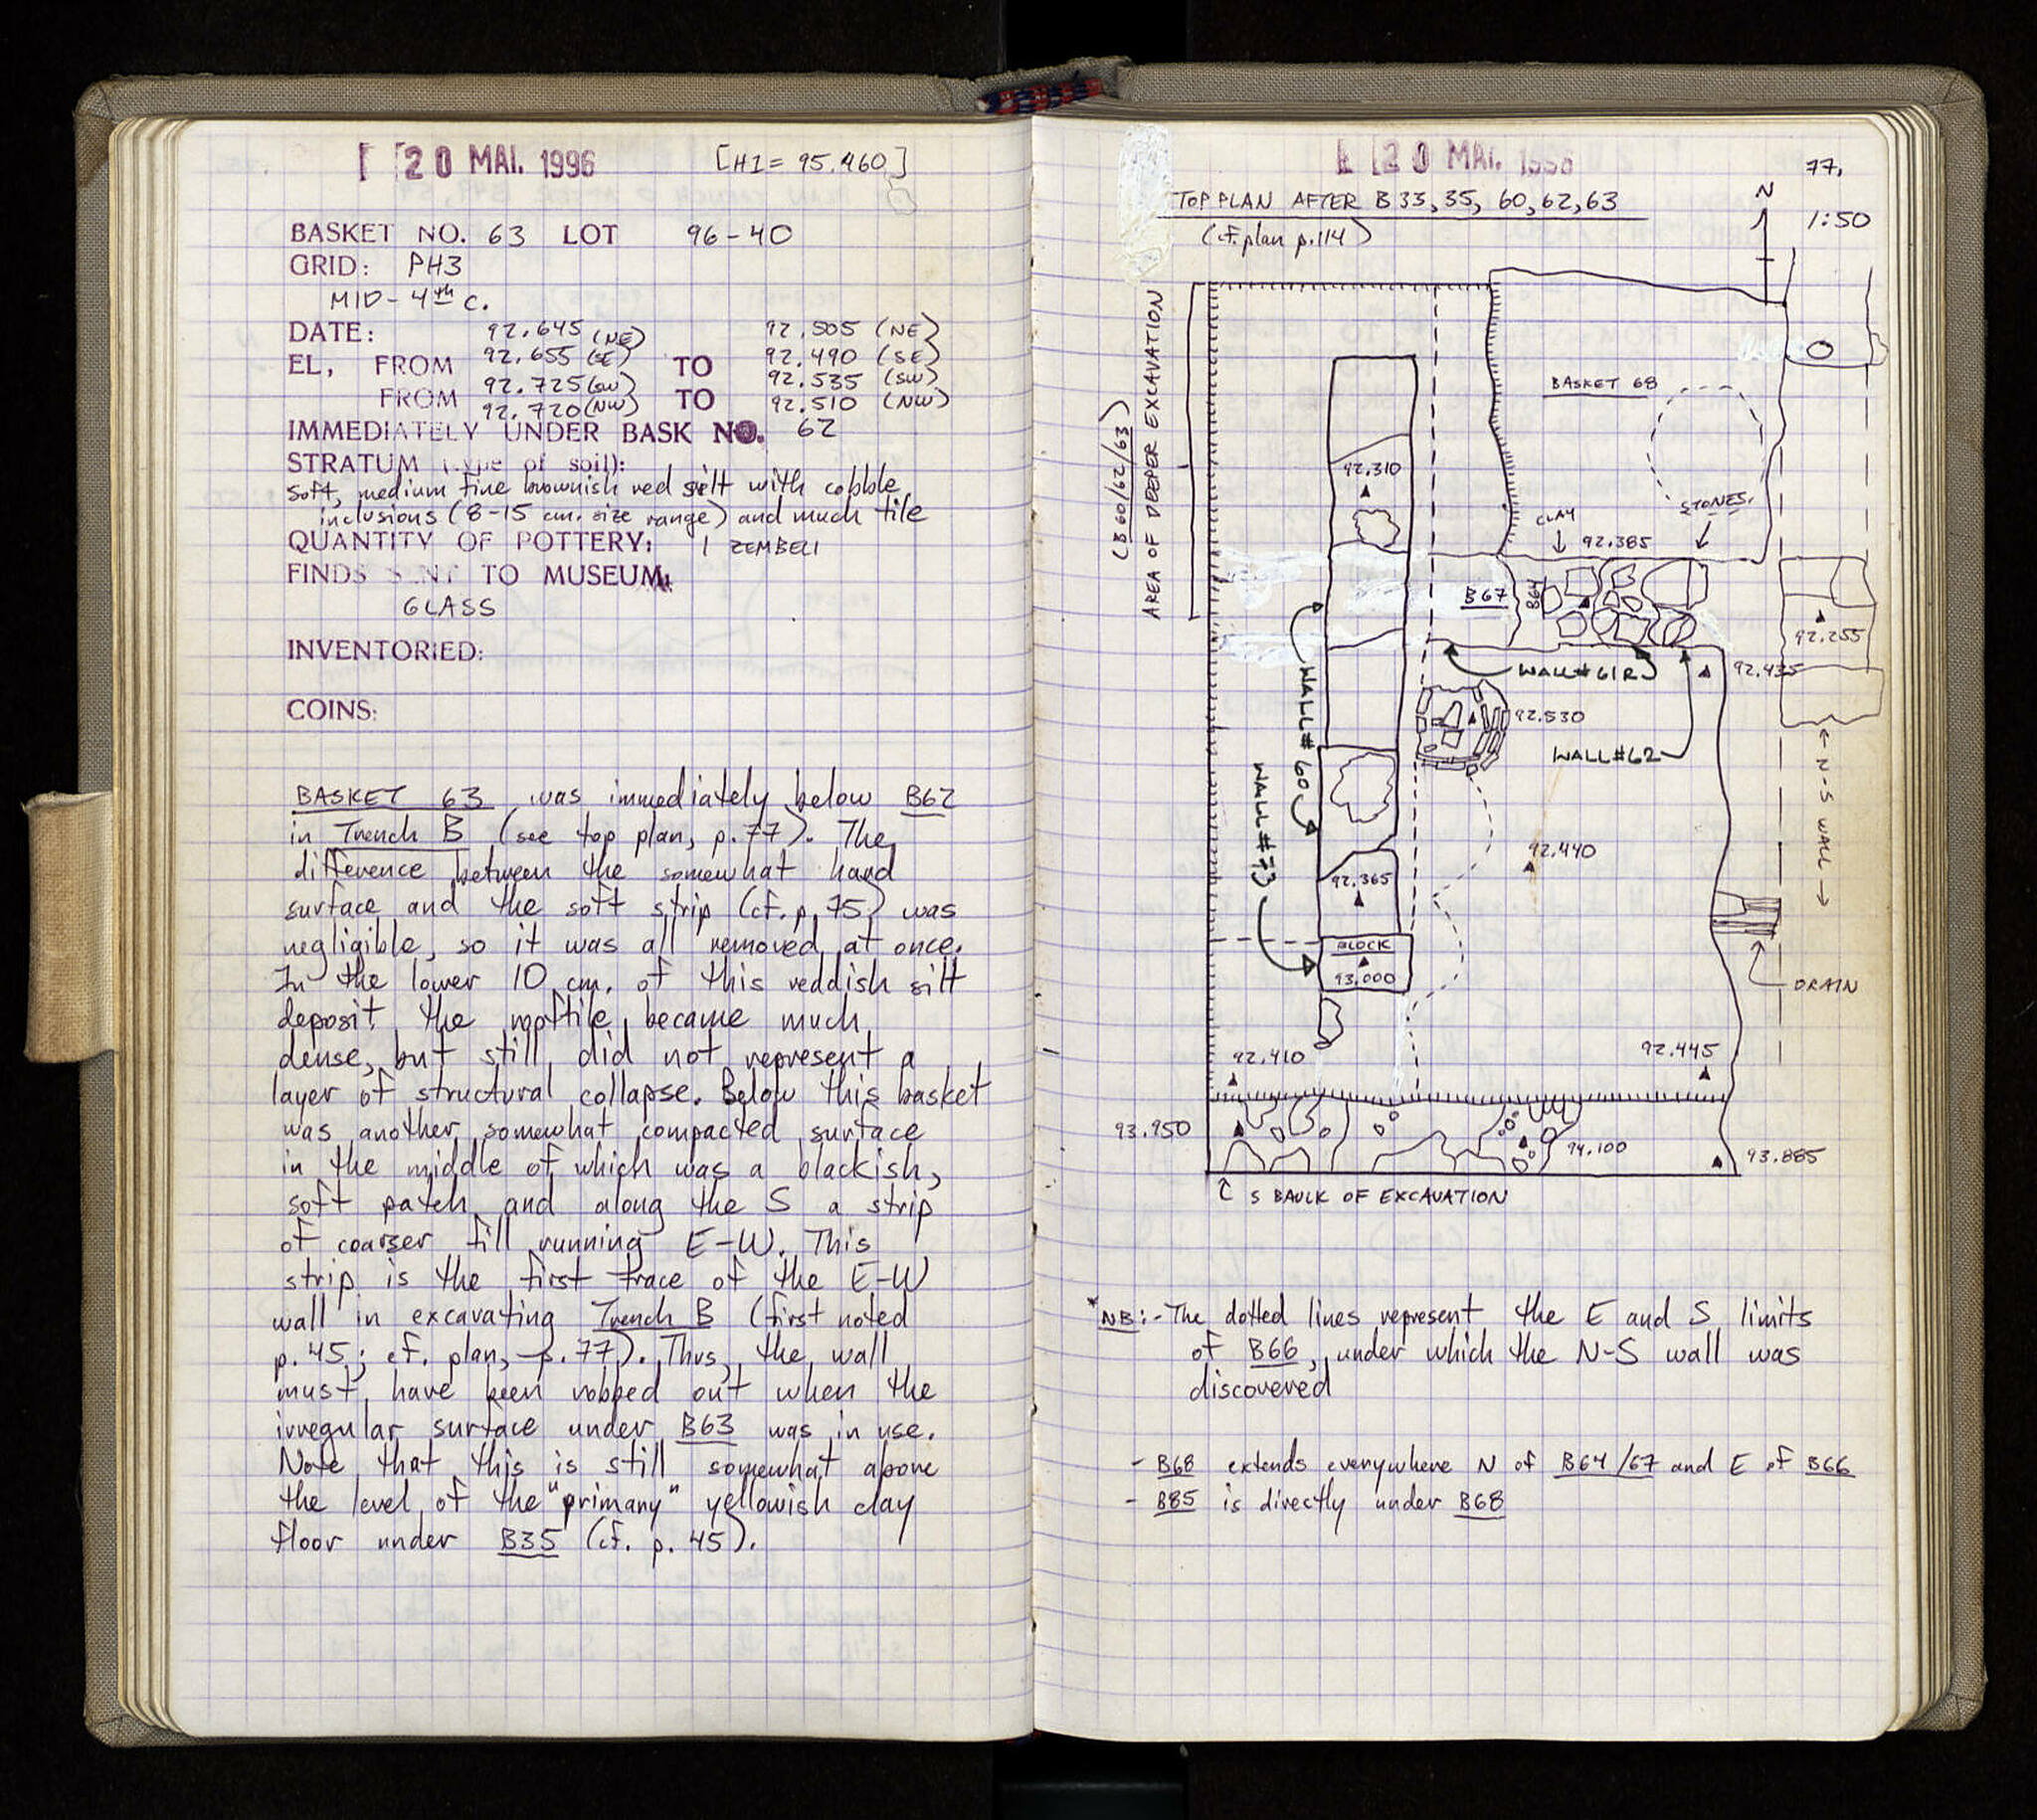 20 MAI. 1996 [HI = 95.460]
BASKET NO. 63 LOT 96-40
GRID: PH3
MID-4th C.
DATE: 92.645 (NE) 92.505 (NE)
EL, FROM 92.655 (SE) TO 92.490 (SE)
FROM 92.725 (SW) TO 92.535 (SW)
92.720 (NW) 92.510 (NW)
IMMEDIATELY UNDER BASK NO. 62
STRATUM (type of soil):
soft, medium fine brownish red silt with cobble
inclusions (8-15 cm. size range) and much tile
QUANTITY OF POTTERY: 1 ZEMBELI
FINDS SENT TO MUSEUM:
GLASS
INVENTORIED:
COINS:
BASKET 63 was immediately below B62
in Trench B (see top plan, p. 77). The
difference between the somewhat hard
surface and the soft strip (cf. p. 75) was
negligible, so it was all removed at once.
In the lower 10 cm. of this reddish silt
deposit the rooftile became much
dense, but still did not represent a
layer of structural collapse. Below this basket
was another somewhat compacted surface
in the middle of which was a blackish,
soft patch and along the S a strip
of coarser fill running E-W. This
strip is the first trace of the E-W
wall in excavating Trench B (first noted
p. 45; cf. plan, p. 77). Thus, the wall
must have been robbed out when the
irregular surface under B63 was in use.
Note that this is still somewhat above
the level of the "primary" yellowish clay
floor under B35 (cf. p. 45).
20 MAI. 1996
77.
TOP PLAN AFTER B 33, 35, 60, 62, 63
(cf. plan p. 114)
N
1:50
(B 60/62/63)
AREA OF DEEPER EXCAVATION
BASKET 68
92.310
CLAY
STONES.
92.385
B67
B64
92.255
WALL #61R
92.435
92.530
WALL #62
WALL # 60
WALL #73
← N-S WALL →
92.440
92.365
BLOCK
93.000
DRAIN
92.410
92.445
93.950
94.100
93.885
S BAULK OF EXCAVATION
* NB: - The dotted lines represent the E and S limits
of B66, under which the N-S wall was
discovered
- B68 extends everywhere N of B64/67 and E of B66
- B85 is directly under B68